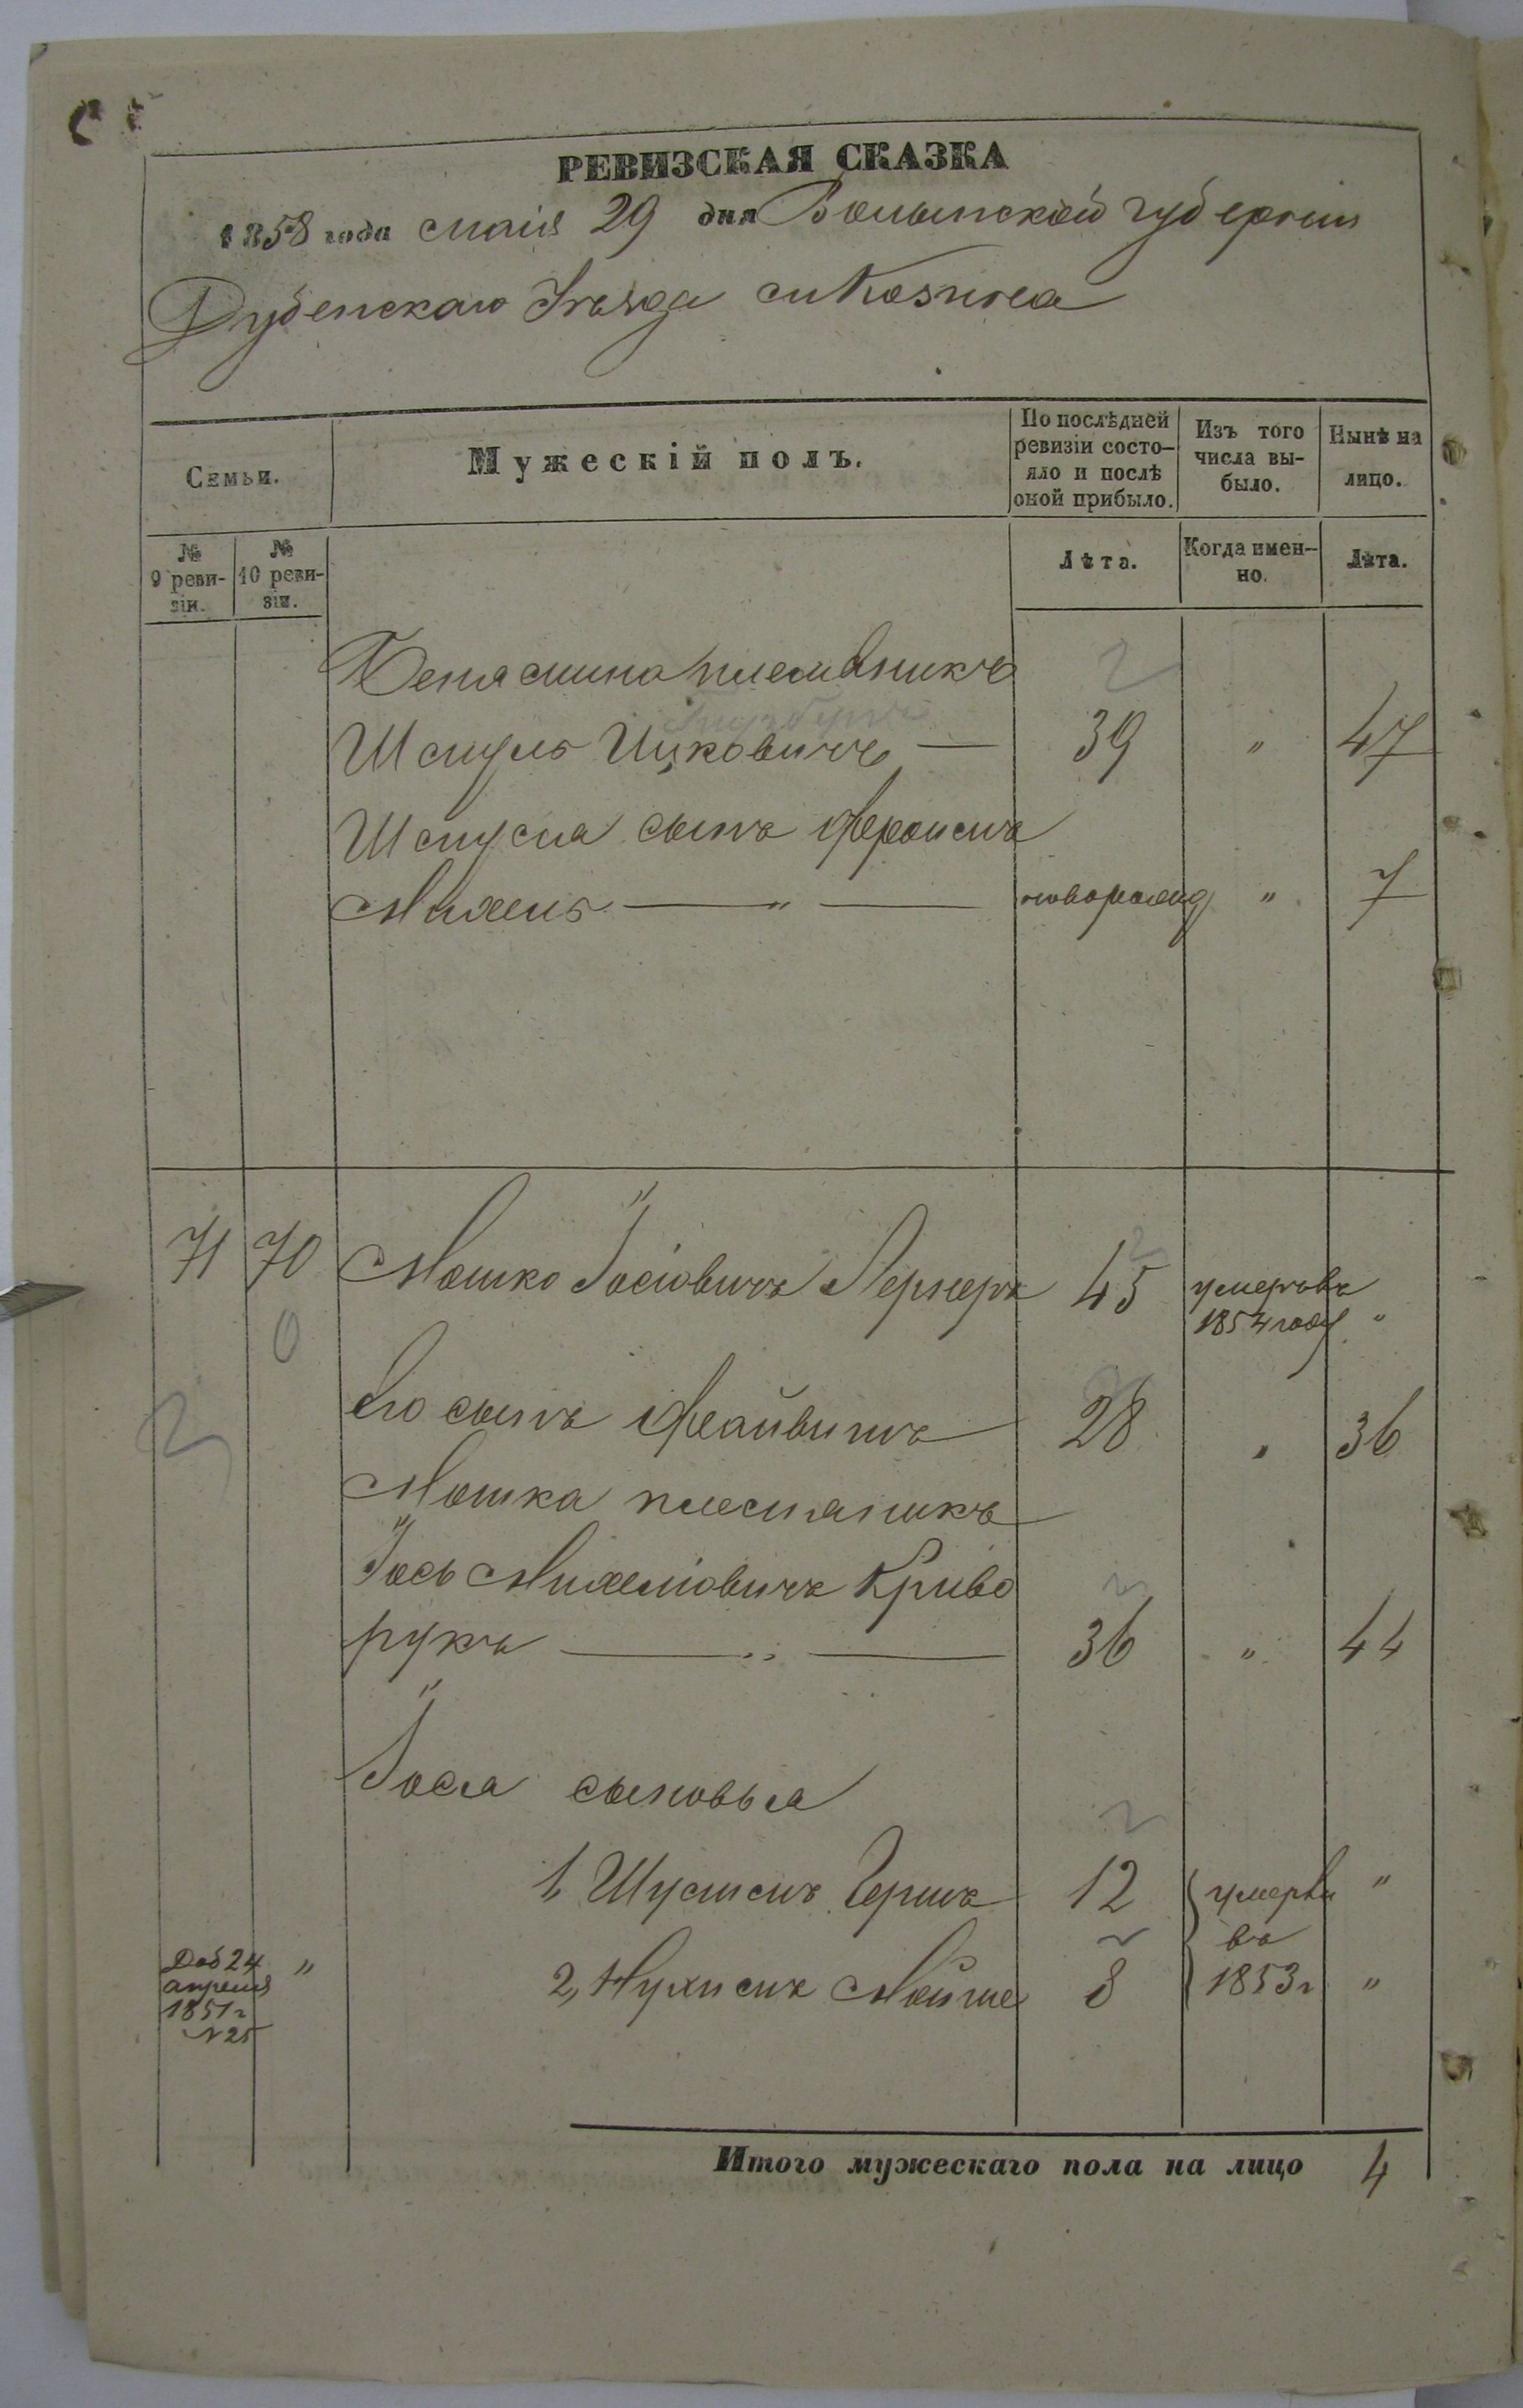 РЕВИЗСКАЯ СКАЗКА
1858 года маія 29 дня Волынской губерніи
Дубенскаго Уѣзда м Козина
Семьи.
Мужескій полъ.
По послѣдней ревизіи состо-яло и послѣ оной прибыло.
Изъ того числа вы-было.
Нынѣ на лицо.
№ 9 реви-зіи.
№ 10 реви-зіи.
Лѣта.
Когда имен-но.
Лѣта.
Бенямина племяникъ
Шмуль Ицковичъ — 39 " 47
Шмуля сынъ Фроимъ
Михель — " — новорожд " 7
71 70 Мошко Іосіовичъ Лернеръ 45 умеръ въ
1854 году "
0
Его сынъ Файвишъ 28 " 36
Мошка племяникъ
Іось Михеліовичъ Криво
рукъ — " — 36 " 44
Іося сыновья
1, Шулимъ Гершъ 12 умерли "
въ
2, Нухимъ Мойше 8 1853г "
Доб 24 "
апреля
1851г
№ 25
Итого мужескаго пола на лицо 4